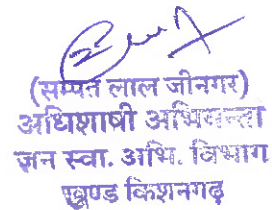 (सम्पत लाल जीनगर)
अधिशाषी अभियन्ता
जन स्वा. अभि. विभाग
खण्ड किशनगढ़